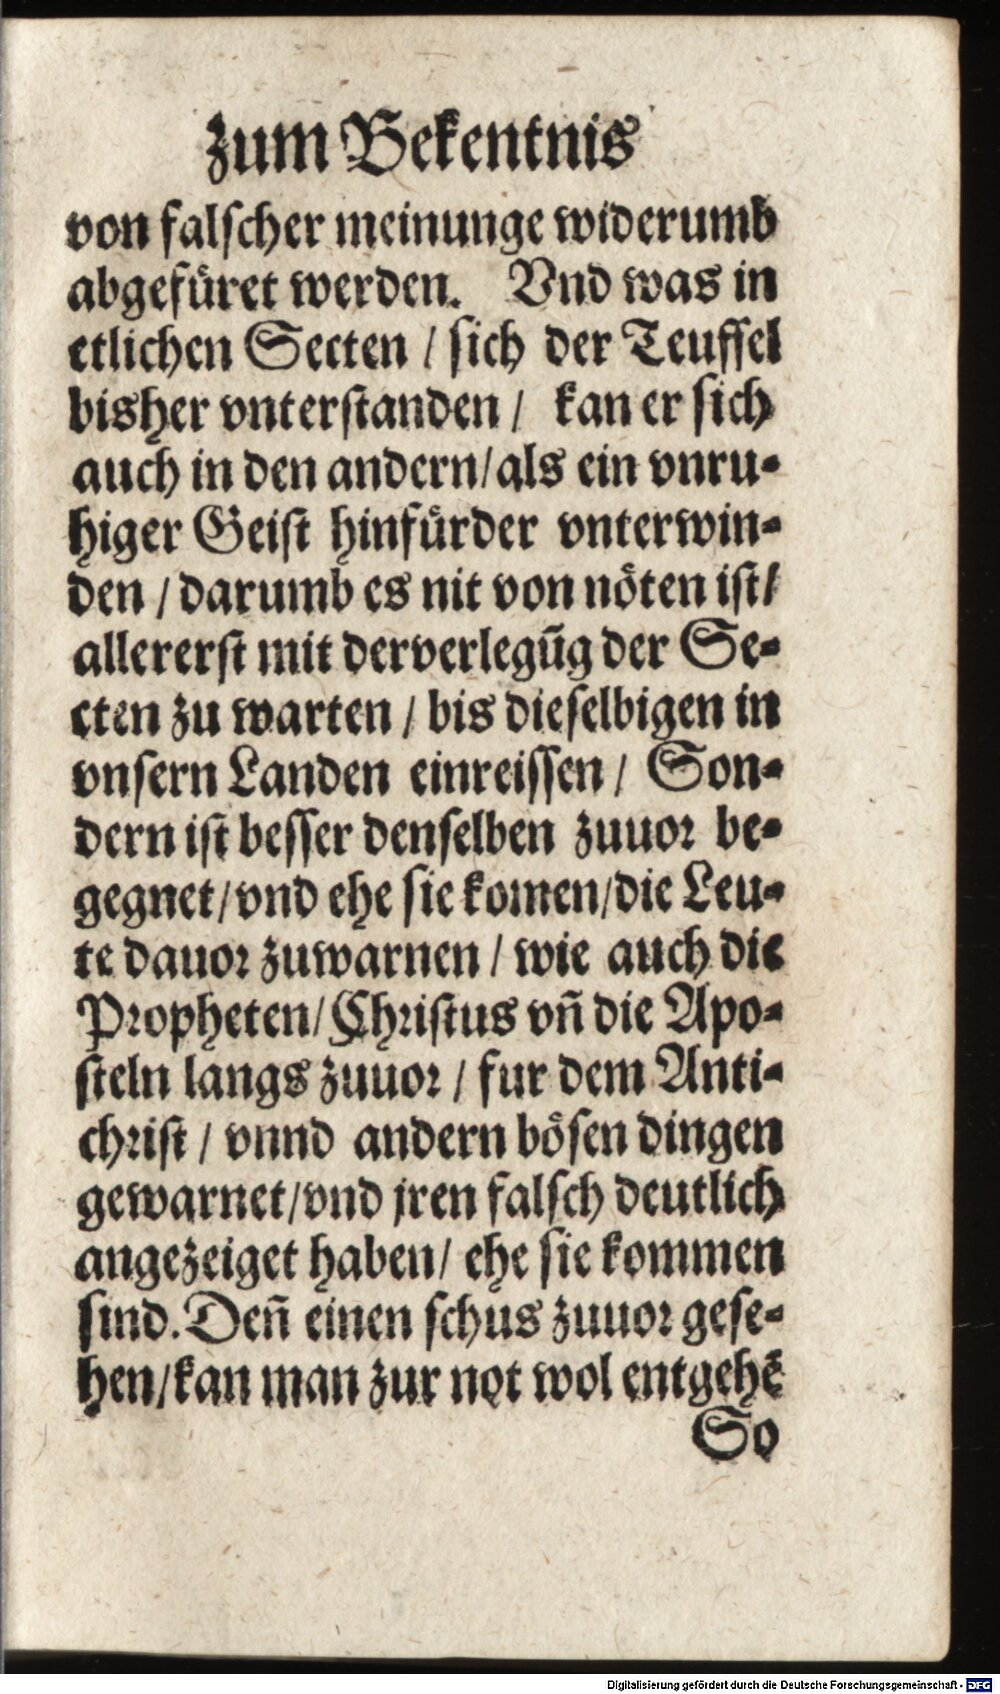 zum Bekentnis
von falscher meinunge widerumb
abgefüret werden. Vnd was in
etlichen Secten / sich der Teuffel
bisher vnterstanden / kan er sich
auch in den andern/als ein vnru-
higer Geist hinfürder vnterwin-
den / darumb es nit von nöten ist/
allererst mit der verlegūg der Se-
cten zu warten / bis dieselbigen in
vnsern Landen einreissen / Son-
dern ist besser denselben zuuor be-
gegnet/vnd ehe sie komen/die Leu-
te dauor zuwarnen / wie auch die
Propheten/Christus vn̄ die Apo-
steln langs zuuor / fur dem Anti-
christ / vnnd andern bösen dingen
gewarnet/vnd jren falsch deutlich
angezeiget haben/ ehe sie kommen
sind. Den̄ einen schus zuuor gese-
hen/kan man zur not wol entgehē
So
Digitalisierung gefördert durch die Deutsche Forschungsgemeinschaft - DFG